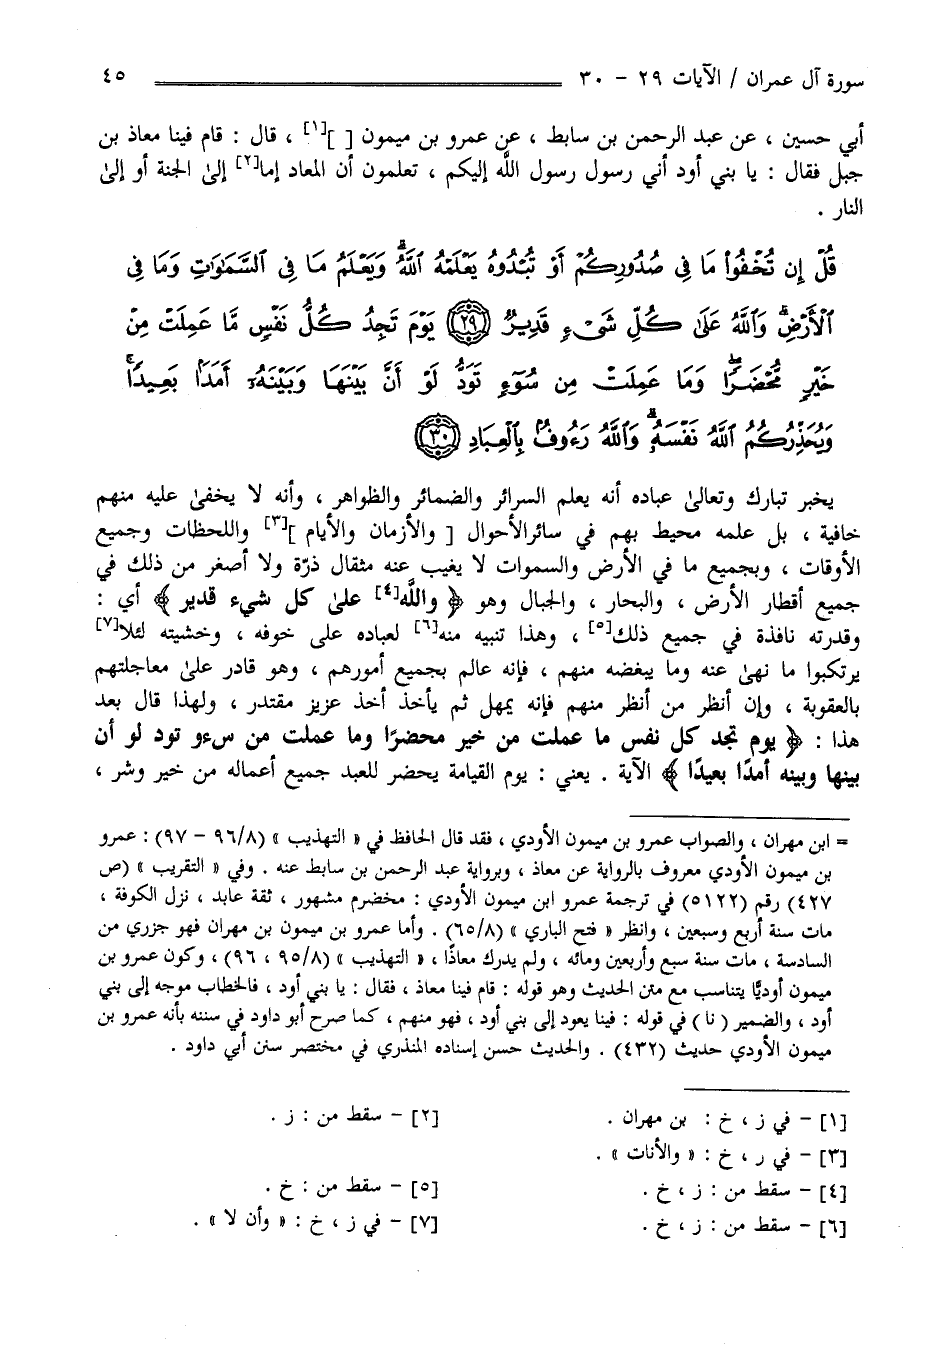 سورة آل عمران / الآيات ٢٩ - ٣٠ ٤٥
أبي حسين ، عن عبد الرحمن بن سابط ، عن عمرو بن ميمون [ ][١] ، قال : قام فينا معاذ بن
جبل فقال : يا بني أود أني رسول رسول اللَّه إليكم ، تعلمون أن المعاد إما[٢] إلىٰ الجنة أو إلىٰ
النار .
قُلْ إِن تُخْفُوا۟ مَا فِى صُدُورِكُمْ أَوْ تُبْدُوهُ يَعْلَمْهُ ٱللَّهُ ۗ وَيَعْلَمُ مَا فِى ٱلسَّمَٰوَٰتِ وَمَا فِى
ٱلْأَرْضِ ۗ وَٱللَّهُ عَلَىٰ كُلِّ شَىْءٍ قَدِيرٌ ﴿٢٩﴾ يَوْمَ تَجِدُ كُلُّ نَفْسٍ مَّا عَمِلَتْ مِنْ
خَيْرٍ مُّحْضَرًا وَمَا عَمِلَتْ مِن سُوٓءٍ تَوَدُّ لَوْ أَنَّ بَيْنَهَا وَبَيْنَهُۥٓ أَمَدًۢا بَعِيدًا ۗ
وَيُحَذِّرُكُمُ ٱللَّهُ نَفْسَهُۥ ۗ وَٱللَّهُ رَءُوفٌۢ بِٱلْعِبَادِ ﴿٣٠﴾
يخبر تبارك وتعالىٰ عباده أنه يعلم السرائر والضمائر والظواهر ، وأنه لا يخفىٰ عليه منهم
خافية ، بل علمه محيط بهم في سائرالأحوال [ والأزمان والأيام ][٣] واللحظات وجميع
الأوقات ، وبجميع ما في الأرض والسموات لا يغيب عنه مثقال ذرّة ولا أصغر من ذلك في
جميع أقطار الأرض ، والبحار ، والجبال وهو ﴿ واللَّه[٤] علىٰ كل شيء قدير ﴾ أي :
وقدرته نافذة في جميع ذلك[٥] ، وهذا تنبيه منه[٦] لعباده على خوفه ، وخشيته لئلا[٧]
يرتكبوا ما نهىٰ عنه وما يبغضه منهم ، فإنه عالم بجميع أمورهم ، وهو قادر علىٰ معاجلتهم
بالعقوبة ، وإن أنظر من أنظر منهم فإنه يمهل ثم يأخذ أخذ عزيز مقتدر ، ولهذا قال بعد
هذا : ﴿ يوم تجد كل نفس ما عملت من خير محضرًا وما عملت من سوءٍ تود لو أن
بينها وبينه أمدًا بعيدًا ﴾ الآية . يعني : يوم القيامة يحضر للعبد جميع أعماله من خير وشر ،
= ابن مهران ، والصواب عمرو بن ميمون الأودي ، فقد قال الحافظ في « التهذيب » (٩٦/٨ - ٩٧) : عمرو
بن ميمون الأودي معروف بالرواية عن معاذ ، وبرواية عبد الرحمن بن سابط عنه . وفي « التقريب » (ص
٤٢٧) رقم (٥١٢٢) في ترجمة عمرو ابن ميمون الأودي : مخضرم مشهور ، ثقة عابد ، نزل الكوفة ،
مات سنة أربع وسبعين ، وانظر « فتح الباري » (٦٥/٨) . وأما عمرو بن ميمون بن مهران فهو جزري من
السادسة ، مات سنة سبع وأربعين ومائه ، ولم يدرك معاذًا ، « التهذيب » (٩٥/٨ ، ٩٦) ، وكون عمرو بن
ميمون أوديًّا يتناسب مع متن الحديث وهو قوله : قام فينا معاذ ، فقال : يا بني أود ، فالخطاب موجه إلى بني
أود ، والضمير ( نا ) في قوله : فينا يعود إلى بني أود ، فهو منهم ، كما صرح أبو داود في سننه بأنه عمرو بن
ميمون الأودي حديث (٤٣٢) . والحديث حسن إسناده المنذري في مختصر سنن أبي داود .
[١] - في ز ، خ : بن مهران . [٢] - سقط من : ز .
[٣] - في ر ، خ : « والأنات » .
[٤] - سقط من : ز ، خ . [٥] - سقط من : خ .
[٦] - سقط من : ز ، خ . [٧] - في ز ، خ : « وأن لا » .